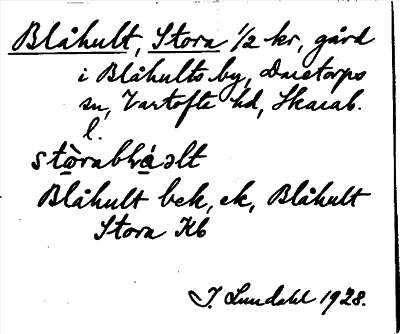 Blåhult, Stora 1/2 kr, gård
i Blåhults by, Daretorps
sn, Vartofte hd, Skarab.
l.
Blåhult bek, ek, Blåhult
Stora Kb
J. Lundahl 1928.